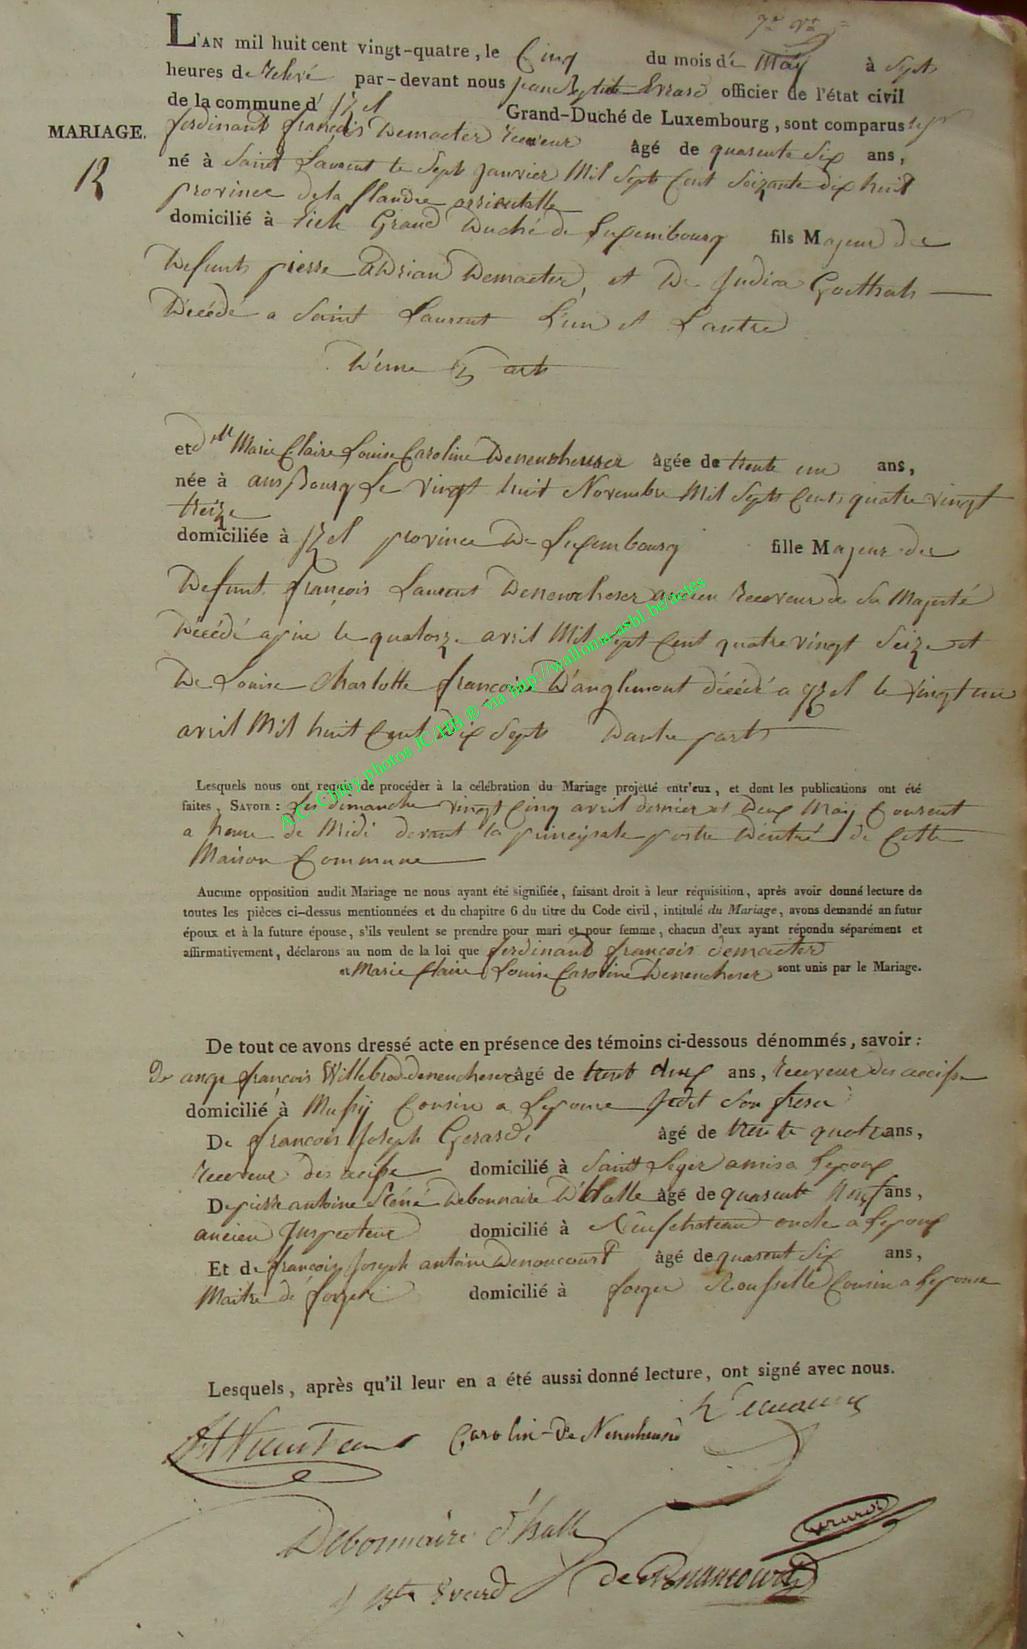 L'AN mil huit cent vingt-quatre, le Cinq du mois de May à Sept
heures de relevé par-devant nous jean Baptiste Evrard officier de l'état civil
de la commune d' Izel Grand-Duché de Luxembourg, sont comparus le Sr
MARIAGE.
ferdinand françois Demaeter receveur âgé de quarente Six ans,
né à Saint Laurent le Sept Janvier Mil Sept Cent Soixante dix huit
province de la flandre orientalle
domicilié à Grand Duché de Luxembourg fils Majeur de
Defunts pierre Adrian Demaeter, et De Judica
Décédé a Saint Laurent L'un et Lautre
D'une part
et dlle Marie Claire Louise Caroline Deneucheuser âgée de trente un ans,
née à ansbourg Le vingt huit Novembre Mil Sept Cents quatre vingt
treize
domiciliée à Izel province De Luxembourg fille Majeur de
Defunt françois Laurent Deneucheser ancien receveur de Sa Majesté
Décédé a le quatorze avril Mil Sept Cent quatre vingt Seize et
De Louise Charlotte françoise D'anglemont décédé a yzel le vingt un
avril Mil huit Cent Dix Sept Dautre part
Lesquels nous ont requis de procéder à la célébration du Mariage projetté entr'eux, et dont les publications ont été
faites, SAVOIR: Les dimanche vingt Cinq avril dernier et Deux May Courent
a heure de Midi devant la principale porte D'entré de Cette
Maison Commune
Aucune opposition audit Mariage ne nous ayant été signifiée, faisant droit à leur réquisition, après avoir donné lecture de
toutes les pièces ci-dessus mentionnées et du chapitre 6 du titre du Code civil, intitulé du Mariage, avons demandé au futur
époux et à la future épouse, s'ils veulent se prendre pour mari et pour femme, chacun d'eux ayant répondu séparément et
affirmativement, déclarons au nom de la loi que ferdinand françois demaeter
et Marie Claire Louise Caroline Deneucheser sont unis par le Mariage.
De tout ce avons dressé acte en présence des témoins ci-dessous dénommés, savoir:
De ange françois Willebrod deneucheser âgé de trent deux ans, receveur des accises
domicilié à Mussy Cousin a Lepouse
De françois Joseph Gerard âgé de trente quatre ans,
receveur des domicilié à Saint Leger amis a Lepoux
De pierre antoine Debonnaire D'halle âgé de quarente Neuf ans,
ancien Inspecteur domicilié à Neufchateau oncle a Lepoux
Et de françois Joseph antoine Denoncourt âgé de quarent Six ans,
Maitre de forges domicilié à forge Roussille Cousin a Lepouse
Lesquels, après qu'il leur en a été aussi donné lecture, ont signé avec nous.
Carolin-De Neucheuse
Debonnaire d'halle
Gerard
J Bte Evrard
A.C. Chiny photos JC-HB © via http://wallonia-asbl.be/actes